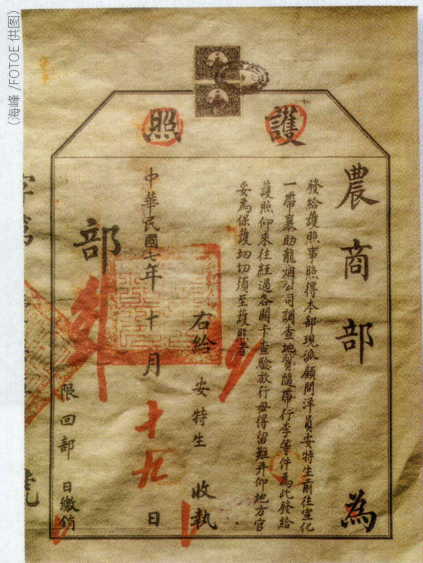 (海峰/FOTOE 供图)
護照
農商部 為
發給護照事照得本部現派顧問洋員安特生前往宣化
一帶襄助龍烟公司調查地質隨帶行李等件為此發給
護照仰來往經過各關卡查驗放行毋得留難并仰地方官
妥為保護切切須至護照者
右給 安特生 收執
中華民國七年十一月十九日
部
限回部日繳銷
字第 號